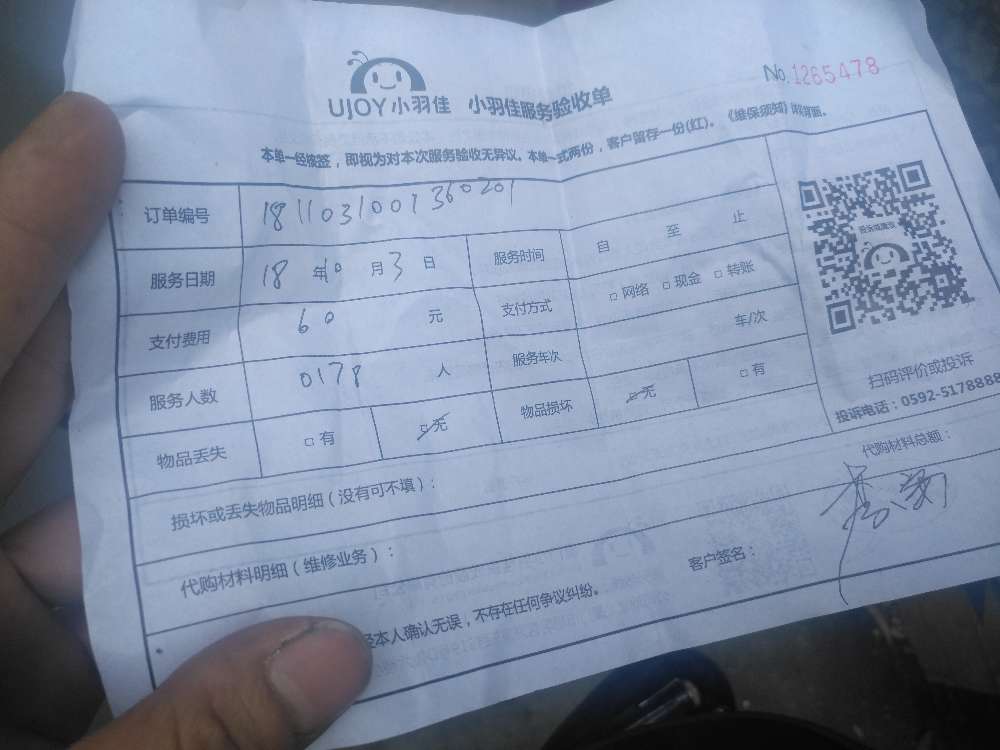 UJOY小羽佳 小羽佳服务验收单
No.1265478
本单一经检签，即视为对本次服务验收无异议。本单一式两份，客户留存一份(红)。《维保须知》详背面。
订单编号 1811031001360201
服务日期 18年10月3日 服务时间 自 至 止
支付费用 60 元 支付方式 □网络 □现金 □转账
服务人数 0178 人 服务车次 车/次
物品丢失 □有 □无 物品损坏 □无 □有
投诉或建议
扫码评价或投诉
投诉电话：0592-5178888
损坏或丢失物品明细（没有可不填）：
代购材料总额：
代购材料明细（维修业务）：
经本人确认无误，不存在任何争议纠纷。
客户签名：